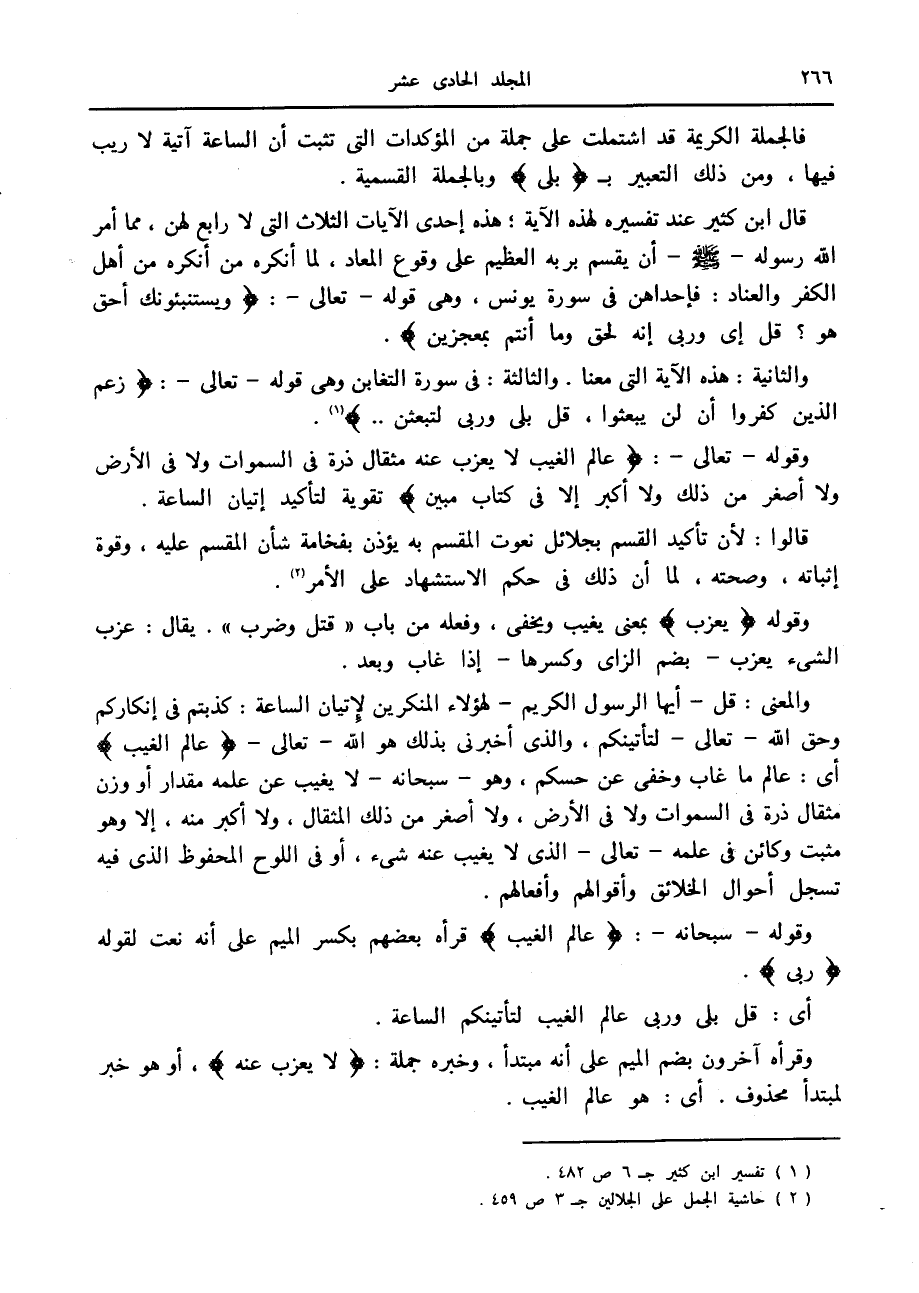 ٢٦٦ المجلد الحادى عشر
فالجملة الكريمة قد اشتملت على جملة من المؤكدات التى تثبت أن الساعة آتية لا ريب
فيها ، ومن ذلك التعبير بـ ﴿ بلى ﴾ وبالجملة القسمية .
قال ابن كثير عند تفسيره لهذه الآية ؛ هذه إحدى الآيات الثلاث التى لا رابع لهن ، مما أمر
الله رسوله – ﷺ – أن يقسم بربه العظيم على وقوع المعاد ، لما أنكره من أنكره من أهل
الكفر والعناد : فإحداهن فى سورة يونس ، وهى قوله – تعالى – : ﴿ ويستنبئونك أحق
هو ؟ قل إى وربى إنه لحق وما أنتم بمعجزين ﴾ .
والثانية : هذه الآية التى معنا . والثالثة : فى سورة التغابن وهى قوله – تعالى – : ﴿ زعم
الذين كفروا أن لن يبعثوا ، قل بلى وربى لتبعثن .. ﴾(١) .
وقوله – تعالى – : ﴿ عالم الغيب لا يعزب عنه مثقال ذرة فى السموات ولا فى الأرض
ولا أصغر من ذلك ولا أكبر إلا فى كتاب مبين ﴾ تقوية لتأكيد إتيان الساعة .
قالوا : لأن تأكيد القسم بجلائل نعوت المقسم به يؤذن بفخامة شأن المقسم عليه ، وقوة
إثباته ، وصحته ، لما أن ذلك فى حكم الاستشهاد على الأمر(٢) .
وقوله ﴿ يعزب ﴾ بمعنى يغيب ويخفى ، وفعله من باب « قتل وضرب » . يقال : عزب
الشىء يعزب – بضم الزاى وكسرها – إذا غاب وبعد .
والمعنى : قل – أيها الرسول الكريم – لهؤلاء المنكرين لإتيان الساعة : كذبتم فى إنكاركم
وحق الله – تعالى – لتأتينكم ، والذى أخبرنى بذلك هو الله – تعالى – ﴿ عالم الغيب ﴾
أى : عالم ما غاب وخفى عن حسكم ، وهو – سبحانه – لا يغيب عن علمه مقدار أو وزن
مثقال ذرة فى السموات ولا فى الأرض ، ولا أصغر من ذلك المثقال ، ولا أكبر منه ، إلا وهو
مثبت وكائن فى علمه – تعالى – الذى لا يغيب عنه شىء ، أو فى اللوح المحفوظ الذى فيه
تسجل أحوال الخلائق وأقوالهم وأفعالهم .
وقوله – سبحانه – : ﴿ عالم الغيب ﴾ قرأه بعضهم بكسر الميم على أنه نعت لقوله
﴿ ربى ﴾ .
أى : قل بلى وربى عالم الغيب لتأتينكم الساعة .
وقرأه آخرون بضم الميم على أنه مبتدأ ، وخبره جملة : ﴿ لا يعزب عنه ﴾ ، أو هو خبر
لمبتدأ محذوف . أى : هو عالم الغيب .
( ١ ) تفسير ابن كثير جـ ٦ ص ٤٨٢ .
( ٢ ) حاشية الجمل على الجلالين جـ ٣ ص ٤٥٩ .